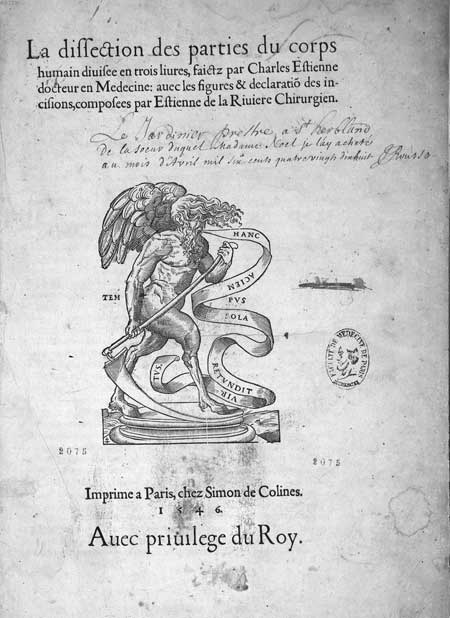 La dissection des parties du corps
humain diuisee en trois liures, faictz par Charles Estienne
docteur en Medecine: auec les figures & declaratiō des in-
cisions, composees par Estienne de la Riuiere Chirurgien.
Le Jardinier prestre a St herbland
de la soeur duquel Madame Noel je l'ay acheté
au mois d'Avril mil six cents quatre vingts dixhuit
HANC
ACIEM
TEM
PVS
SOLA
RETVNDIT
VIR
TVS.
FACULTÉ DE MÉDECINE DE PARIS
2075
2075
Imprime a Paris, chez Simon de Colines.
1546.
Auec priuilege du Roy.